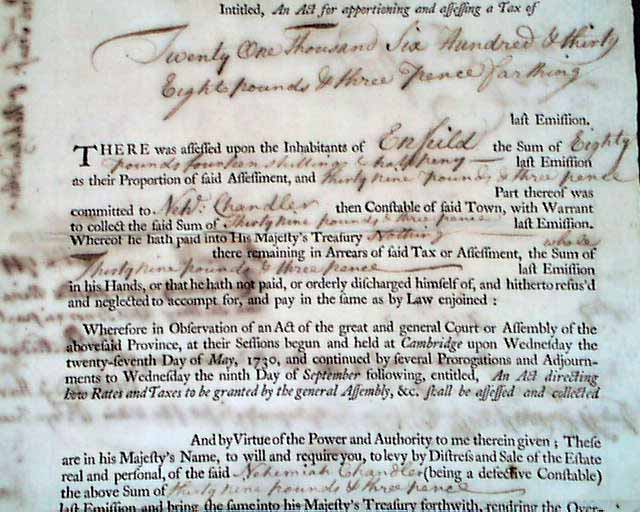 Intitled, An Act for apportioning and assessing a Tax of
Twenty One Thousand Six Hundred & thirty
Eight pounds & three pence farthing
last Emission.
THERE was assessed upon the Inhabitants of Enfeild the Sum of Eighty
pounds fourteen shillings & half peny last Emission
as their Proportion of said Assessment, and thirty nine pounds & three pence
Part thereof was
committed to Nehᵃ. Chandler then Constable of said Town, with Warrant
to collect the said Sum of Thirty nine pounds & three pence last Emission.
Whereof he hath paid into His Majesty's Treasury Nothing whole
there remaining in Arrears of said Tax or Assessment, the Sum of
Thirty nine pounds & three pence last Emission
in his Hands, or that he hath not paid, or orderly discharged himself of, and hitherto refus'd
and neglected to accompt for, and pay in the same as by Law enjoined :
Wherefore in Observation of an Act of the great and general Court or Assembly of the
abovesaid Province, at their Sessions begun and held at Cambridge upon Wednesday the
twenty-seventh Day of May, 1730, and continued by several Prorogations and Adjourn-
ments to Wednesday the ninth Day of September following, entitled, An Act directing
how Rates and Taxes to be granted by the general Assembly, &c. shall be assessed and collected
And by Virtue of the Power and Authority to me therein given ; These
are in his Majesty's Name, to will and require you, to levy by Distress and Sale of the Estate
real and personal, of the said Nehemiah Chandler (being a defective Constable)
the above Sum of thirty nine pounds & three pence
last Emission and bring the same into his Majesty's Treasury forthwith, rendring the Over-